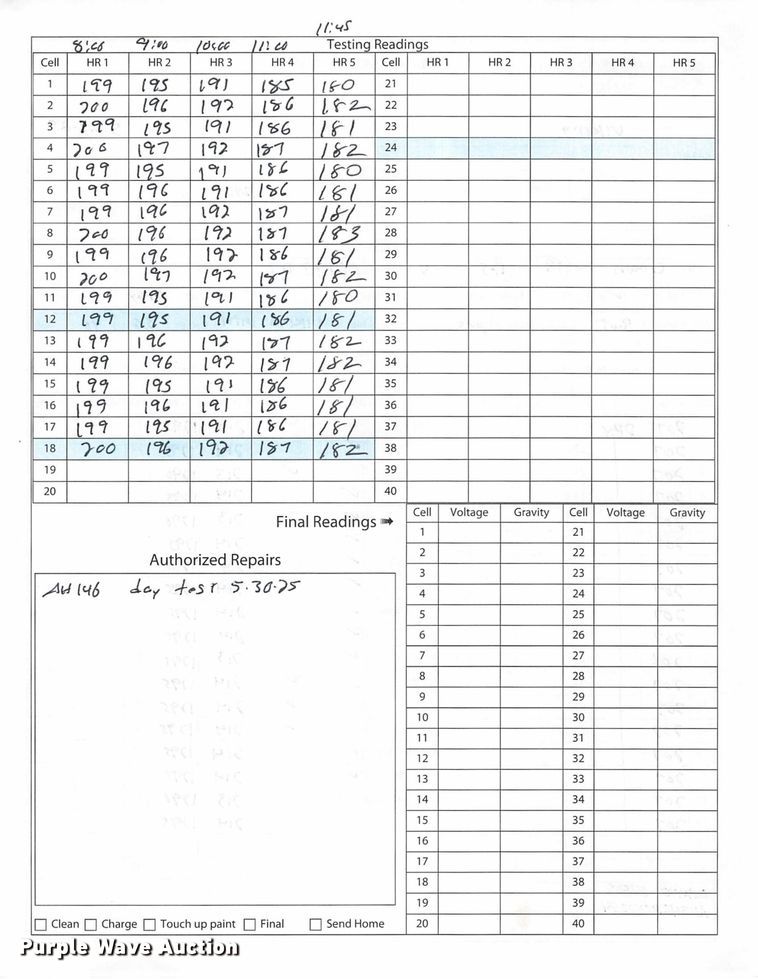 11:45
8:00 9:00 10:00 11:00 Testing Readings
Cell HR 1 HR 2 HR 3 HR 4 HR 5 Cell HR 1 HR 2 HR 3 HR 4 HR 5
1 199 195 191 185 180 21
2 200 196 192 186 182 22
3 199 195 191 186 181 23
4 200 197 192 187 182 24
5 199 195 191 186 180 25
6 199 196 191 186 181 26
7 199 196 192 187 181 27
8 200 196 192 187 183 28
9 199 196 192 186 181 29
10 200 197 192 187 182 30
11 199 195 191 186 180 31
12 199 195 191 186 181 32
13 199 196 192 187 182 33
14 199 196 192 187 182 34
15 199 195 191 186 181 35
16 199 196 191 186 181 36
17 199 195 191 186 181 37
18 200 196 192 187 182 38
19 39
20 40
Final Readings ➠ Cell Voltage Gravity Cell Voltage Gravity
1 21
2 22
3 23
4 24
5 25
6 26
7 27
8 28
9 29
10 30
11 31
12 32
13 33
14 34
15 35
16 36
17 37
18 38
19 39
20 40
Authorized Repairs
AH 146 day test 5.30.25
Clean Charge Touch up paint Final Send Home
Purple Wave Auction